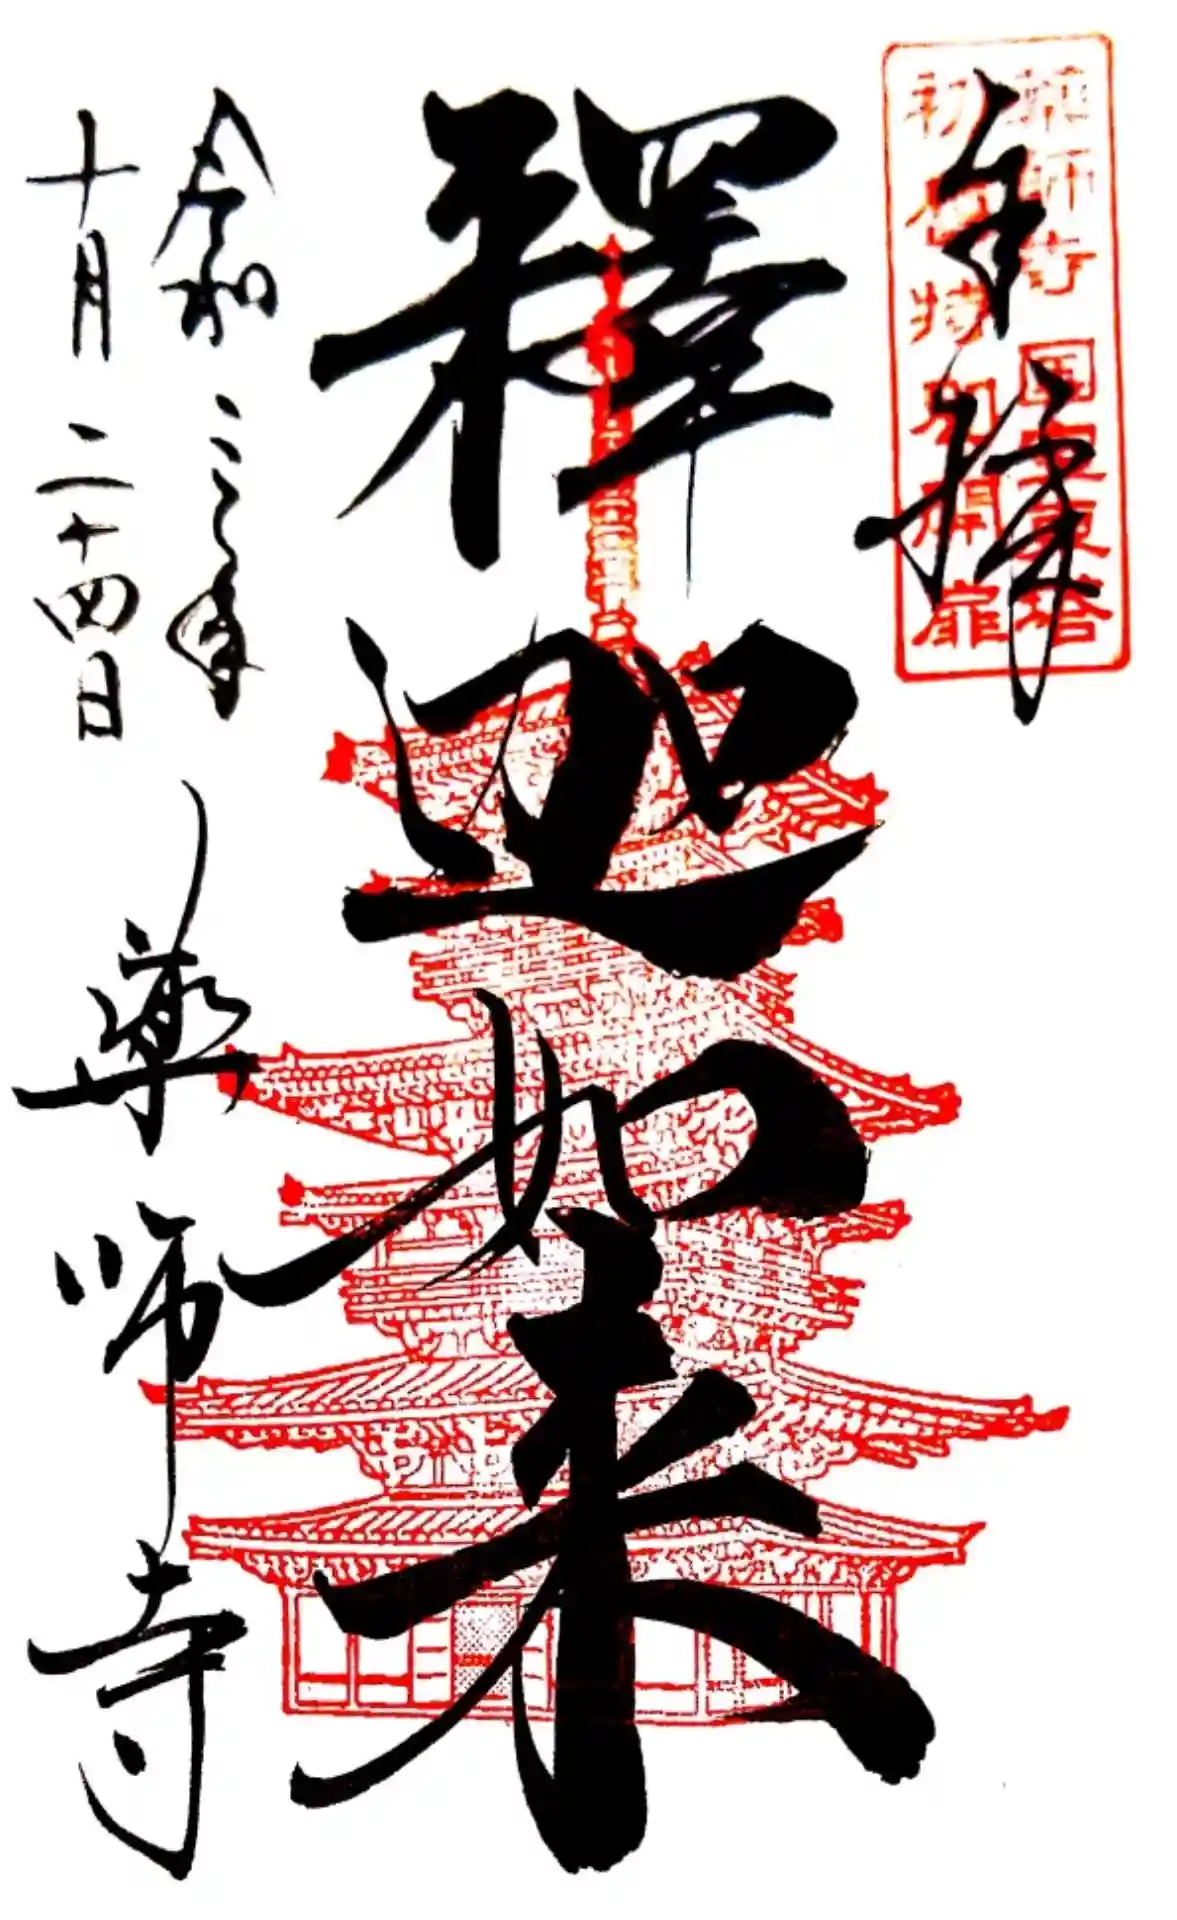 奉拝
薬師寺 国宝東塔
初層特別開扉
釋迦如来
令和三年
十月二十四日
薬師寺